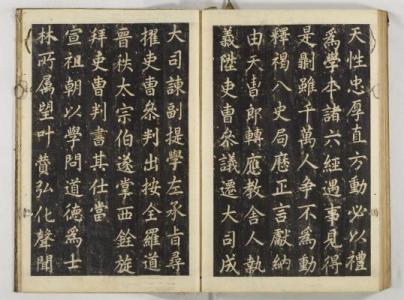 天性忠厚直方動必以禮
爲學本諸六經遇事見得
是則雖千萬人爭不爲動
釋褐入史局歷正言獻納
由天曹郎轉應教舍人執
義陞吏曹參議遷大司成
大司諫副提學左承旨尋
擢吏曹參判出按全羅道
晉秩太宗伯遂掌西銓旋
拜吏曹判書其仕當
宣祖朝以學問道德爲士
林所屬望叶贊弘化聲聞